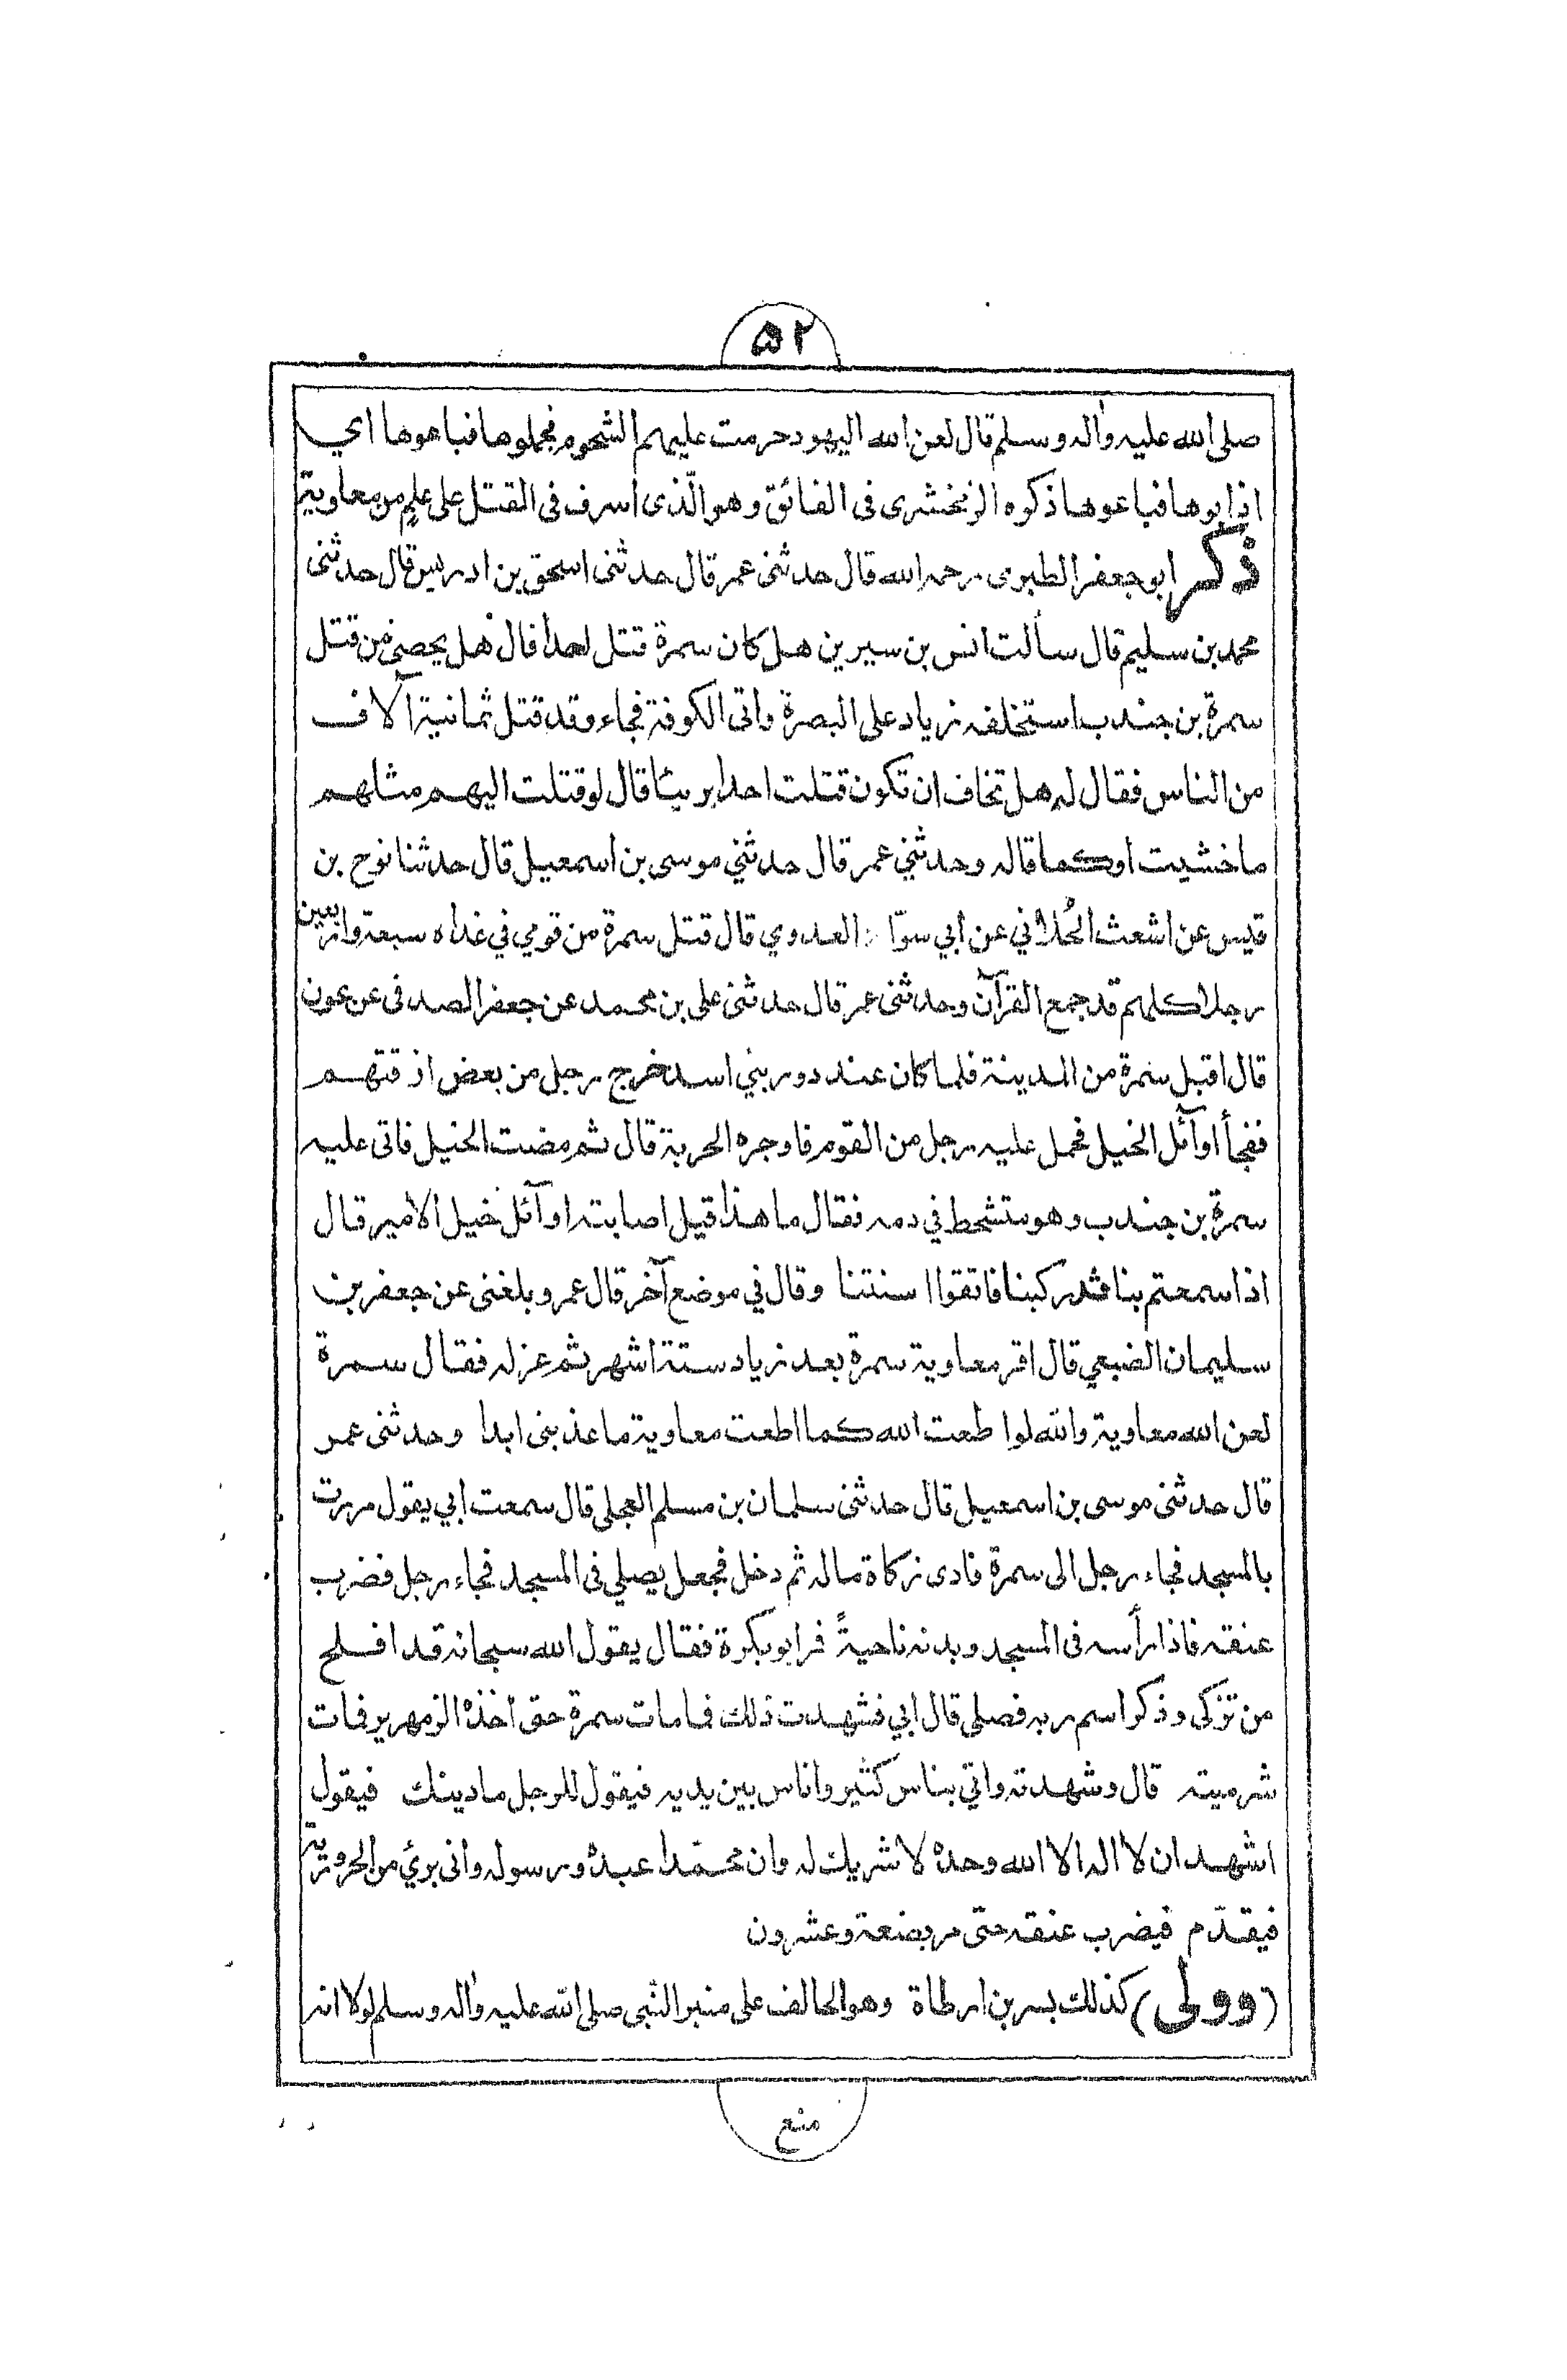 ۵۲
صلى الله عليه واله وسلم قال لعن الله اليهود حرمت عليهم الشحوم فجملوها فباعوها اي
اذابوها فباعوها ذكره الزمخشرى فى الفائق وهو الّذى اسرف فى القتل على علم من معاوية
ذكر ابو جعفر الطبرى رحمه الله قال حدثنى عمر قال حدثنى اسحق بن ادريس قال حدثنى
محمد بن سليم قال سألت انس بن سيرين هل كان سمرة قتل احدا قال هل يحصى من قتل
سمرة بن جندب استخلفه زياد على البصرة واتى الكوفة فجاء وقد قتل ثمانية آلاف
من الناس فقال له هل تخاف ان تكون قتلت احدا بريئا قال لو قتلت اليهم مثلهم
ما خشيت او كما قال وحدثني عمر قال حدثني موسى بن اسمعيل قال حدثنا نوح بن
قيس عن اشعث الحُدّاني عن ابي سوّا العدوي قال قتل سمرة من قومي في غداه سبعة واربعين
رجلا كلهم قد جمع القرآن وحدثنى عمر قال حدثنى على بن محمد عن جعفر الصدفى عن عون
قال اقبل سمرة من المدينة فلما كان عند دور بني اسد خرج رجل من بعض ازقتهم
ففجأ اوآئل الخيل فحمل عليه رجل من القوم فاوجره الحربة قال ثم مضت الخيل فاتى عليه
سمرة بن جندب وهو متشحط في دمه فقال ما هذا قيل اصابته اوآئل خيل الامير قال
اذا سمعتم بنا قد ركبنا فاتقوا اسنتنا وقال في موضع آخر قال عمر وبلغنى عن جعفر بن
سليمان الضبعي قال اقر معاوية سمرة بعد زياد ستة اشهر ثم عزله فقال سمرة
لعن الله معاوية والله لو اطعت الله كما اطعت معاوية ما عذبنى ابدا وحدثنى عمر
قال حدثنى موسى بن اسمعيل قال حدثنى سلمان بن مسلم العجلى قال سمعت ابي يقول مررت
بالمسجد فجاء رجل الى سمرة فادى زكاة ماله ثم دخل فجعل يصلي فى المسجد فجاء رجل فضرب
عنقه فاذا رأسه فى المسجد وبدنه ناحيةً فمر ابو بكرة فقال يقول الله سبحانه قد افلح
من تزكى وذكر اسم ربه فصلى قال ابي فشهدت ذلك فما مات سمرة حتى اخذه الزمهرير فمات
شر ميته قال وشهدته واتي بناس كثير واناس بين يديه فيقول للرجل ما دينك فيقول
اشهد ان لا اله الا الله وحده لا شريك له وان محمّدا عبده ورسوله وانى برئ من الحرورية
فيقدّم فيضرب عنقه حتى مر بضعة وعشرون
(وولى) كذلك بسر بن ارطاة وهو الحالف على منبر النّبى صلى الله عليه واله وسلم لولا انه
منع